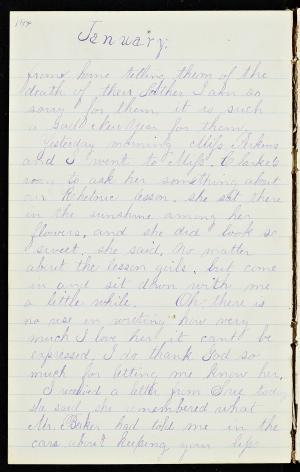 January.
from home telling them of the
death of their father I am so
sorry for them, it is such
a sad New Year for them.
Yesterday morning Miss Atkins
and I went to Miss Clarke's
room to ask her something about
our Rhetoric lesson. she sat there
in the sunshine among her
flowers, and she did look so
sweet. she said, No matter
about the lesson girls. but come
in and sit down with me
a little while. Oh, there is
no use in writing how very
much I love her it can't be
expressed, I do thank God so
much for letting me know her.
I received a letter from Sue today
she said she remembered what
Mr. Baker had told me in the
cars about keeping your lips